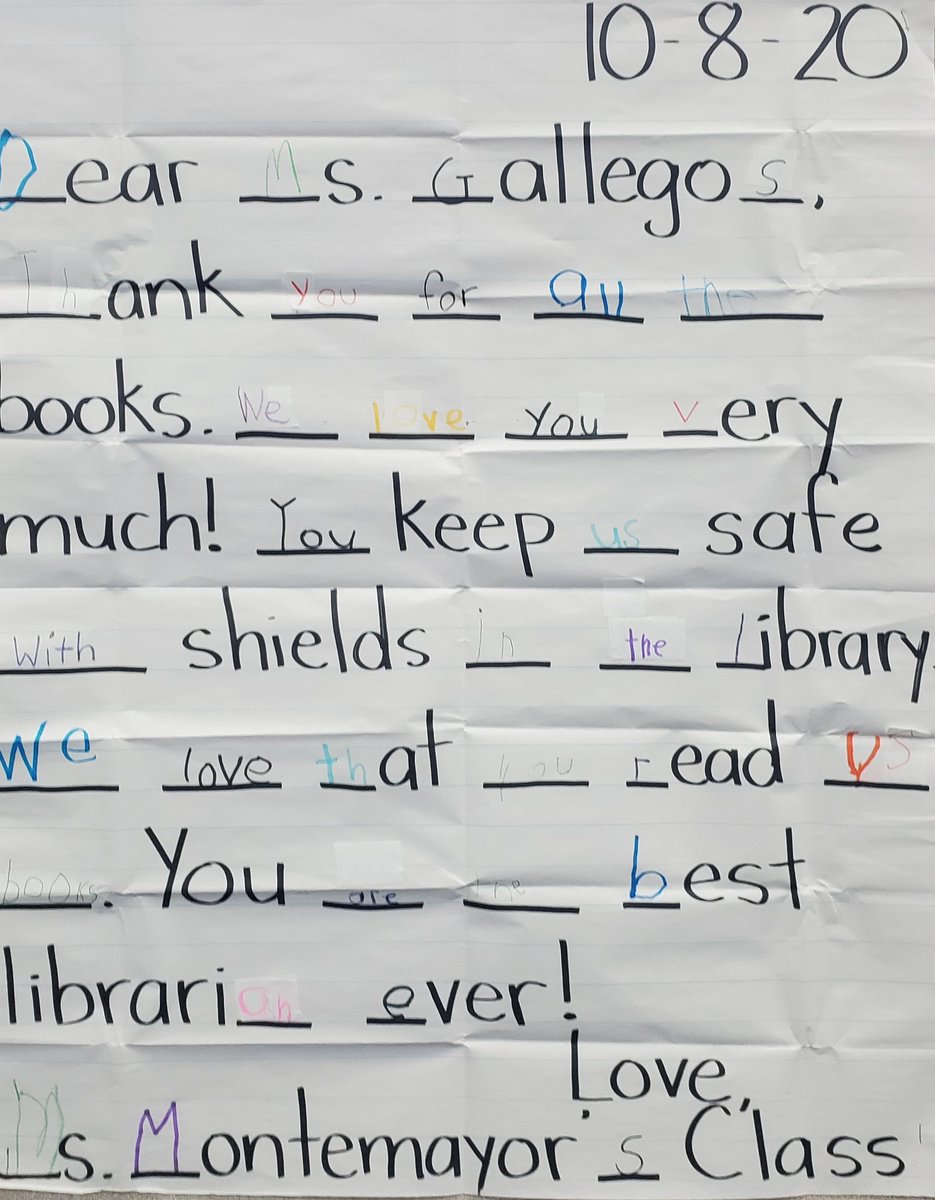 10-8-20
Dear Ms. Gallegos,
Thank you for all the
books. We love you very
much! You keep us safe
with shields in the library.
We love that you read us
books. You are the best
librarian ever!
Love,
Ms. Montemayor's Class